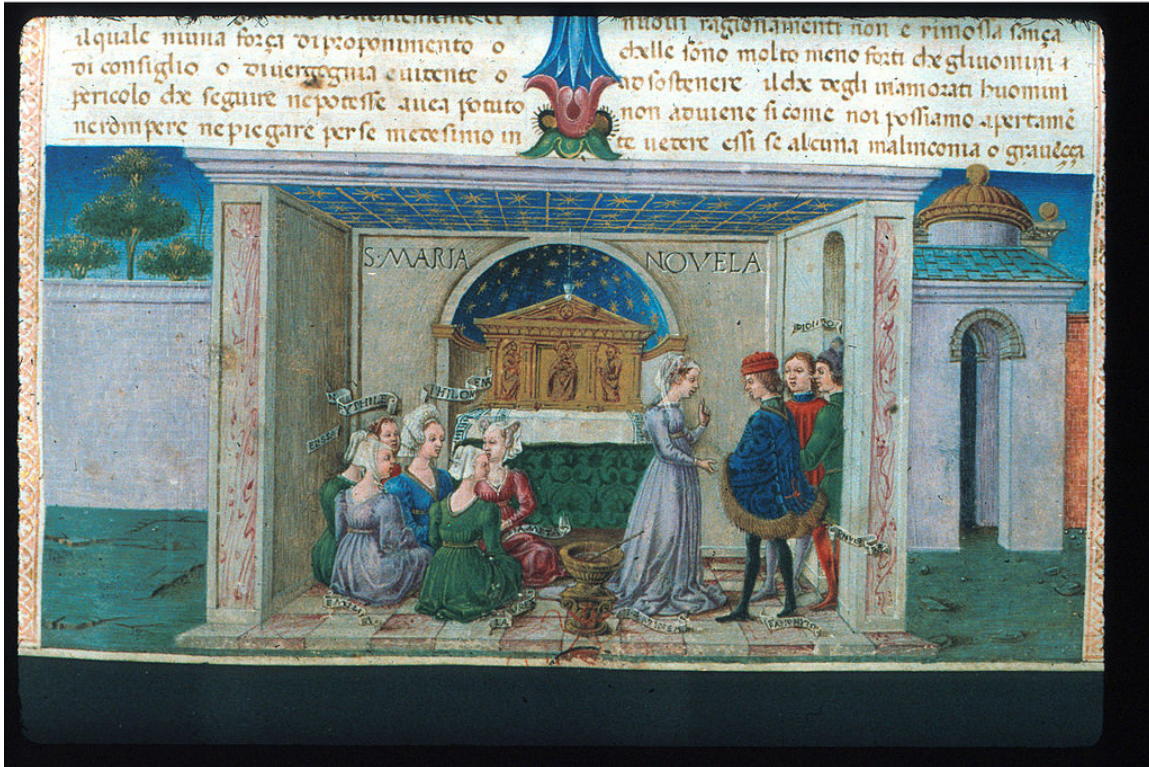 ilquale niuna força diproponimento o
di consiglio o diuergognia euidente o
pericolo che seguire nepotesse auea potuto
nerompere nepiegare perse medesimo in
nuoui ragionamenti non e rimossa sança
chelle sono molto meno forti che gliuomini
ad sostenere il che degli inamorati huomini
non aduiene si come noi possiamo apertamē
te uedere essi se alcuna malinconia o graueçça
S·MARIA NOVELA